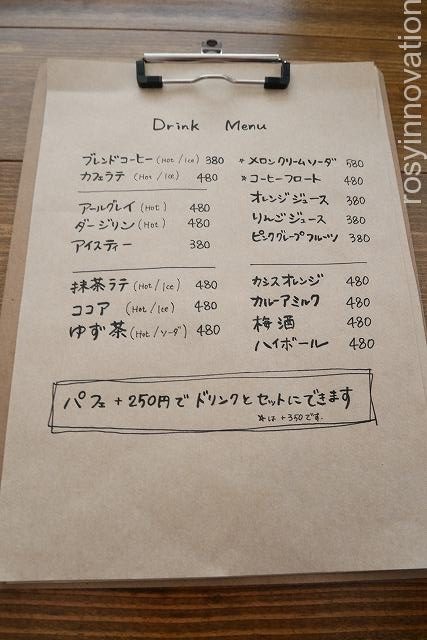 Drink Menu
ブレンドコーヒー(Hot/Ice) 380
カフェラテ (Hot/Ice) 480
アールグレイ (Hot) 480
ダージリン(Hot) 480
アイスティー 380
抹茶ラテ (Hot/Ice) 480
ココア (Hot/Ice) 480
ゆず茶(Hot/ソーダ) 480
*メロンクリームソーダ 580
*コーヒーフロート 480
オレンジジュース 380
りんごジュース 380
ピンクグレープフルーツ 380
カシスオレンジ 480
カルーアミルク 480
梅酒 480
ハイボール 480
パフェ+250円でドリンクとセットにできます
*は+350です.
rosyinnovation